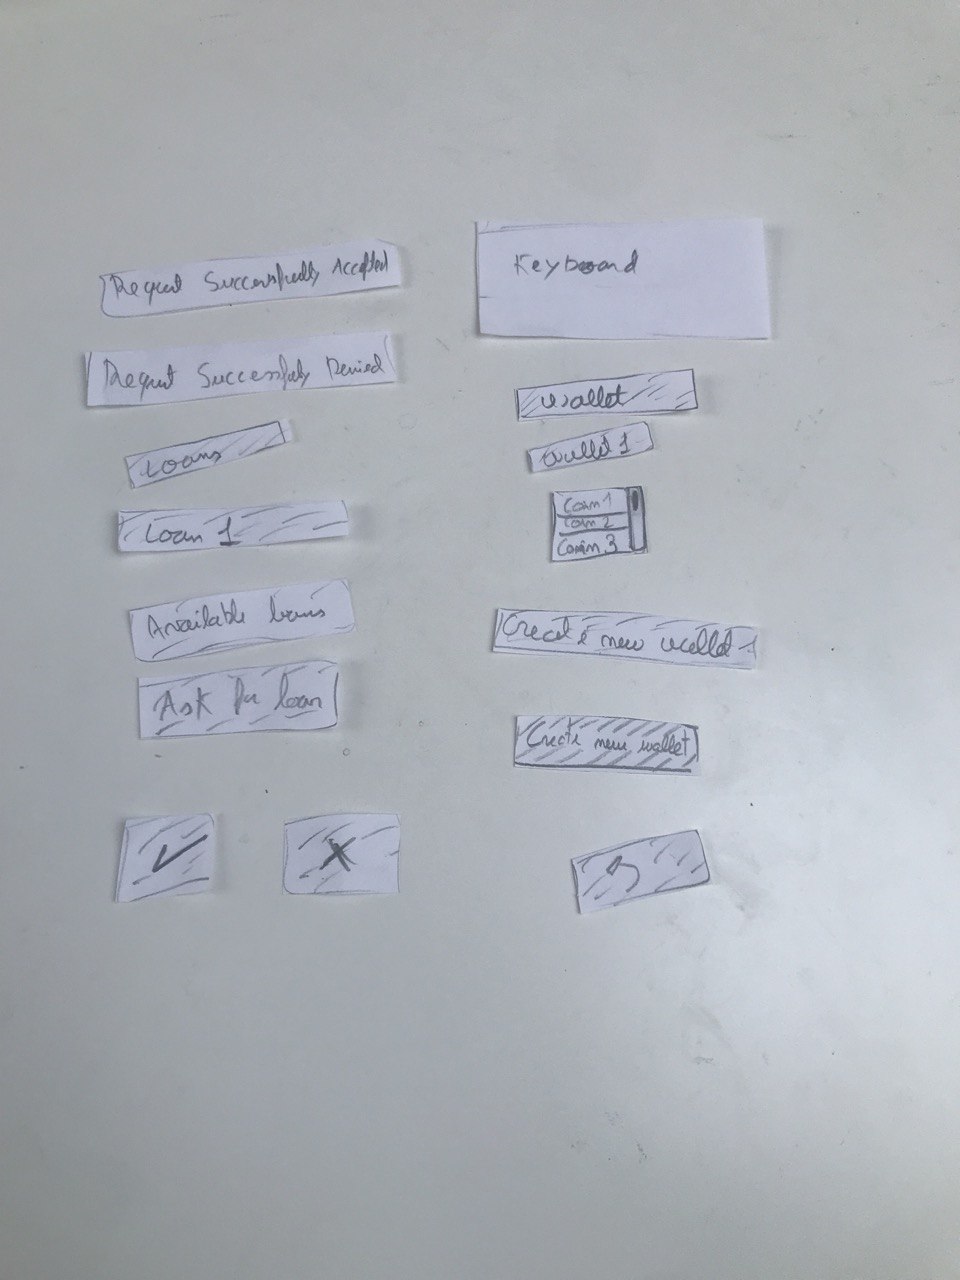 Request Successfully Accepted
Request Successfully Denied
Loans
Loan 1
Available loans
Ask for loan
Keyboard
Wallet
Wallet 1
Coin 1
Coin 2
Coin 3
Create new wallet 1
Create new wallet